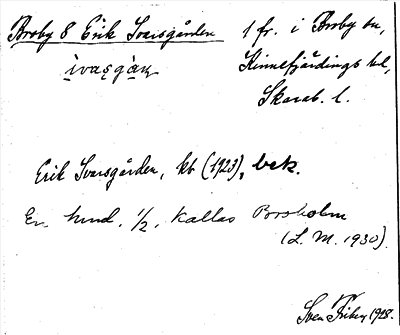 Broby 8 Erik Ivarsgården 1 fr. i Broby sn,
ìvaṣgàṇ Kinnefjärdings hd,
Skarab. l.
Erik Ivarsgården, kb (1923), bek.
En hemd. 1/2, kallas Bossholm
(L. M. 1930).
Sven Friberg 1928.